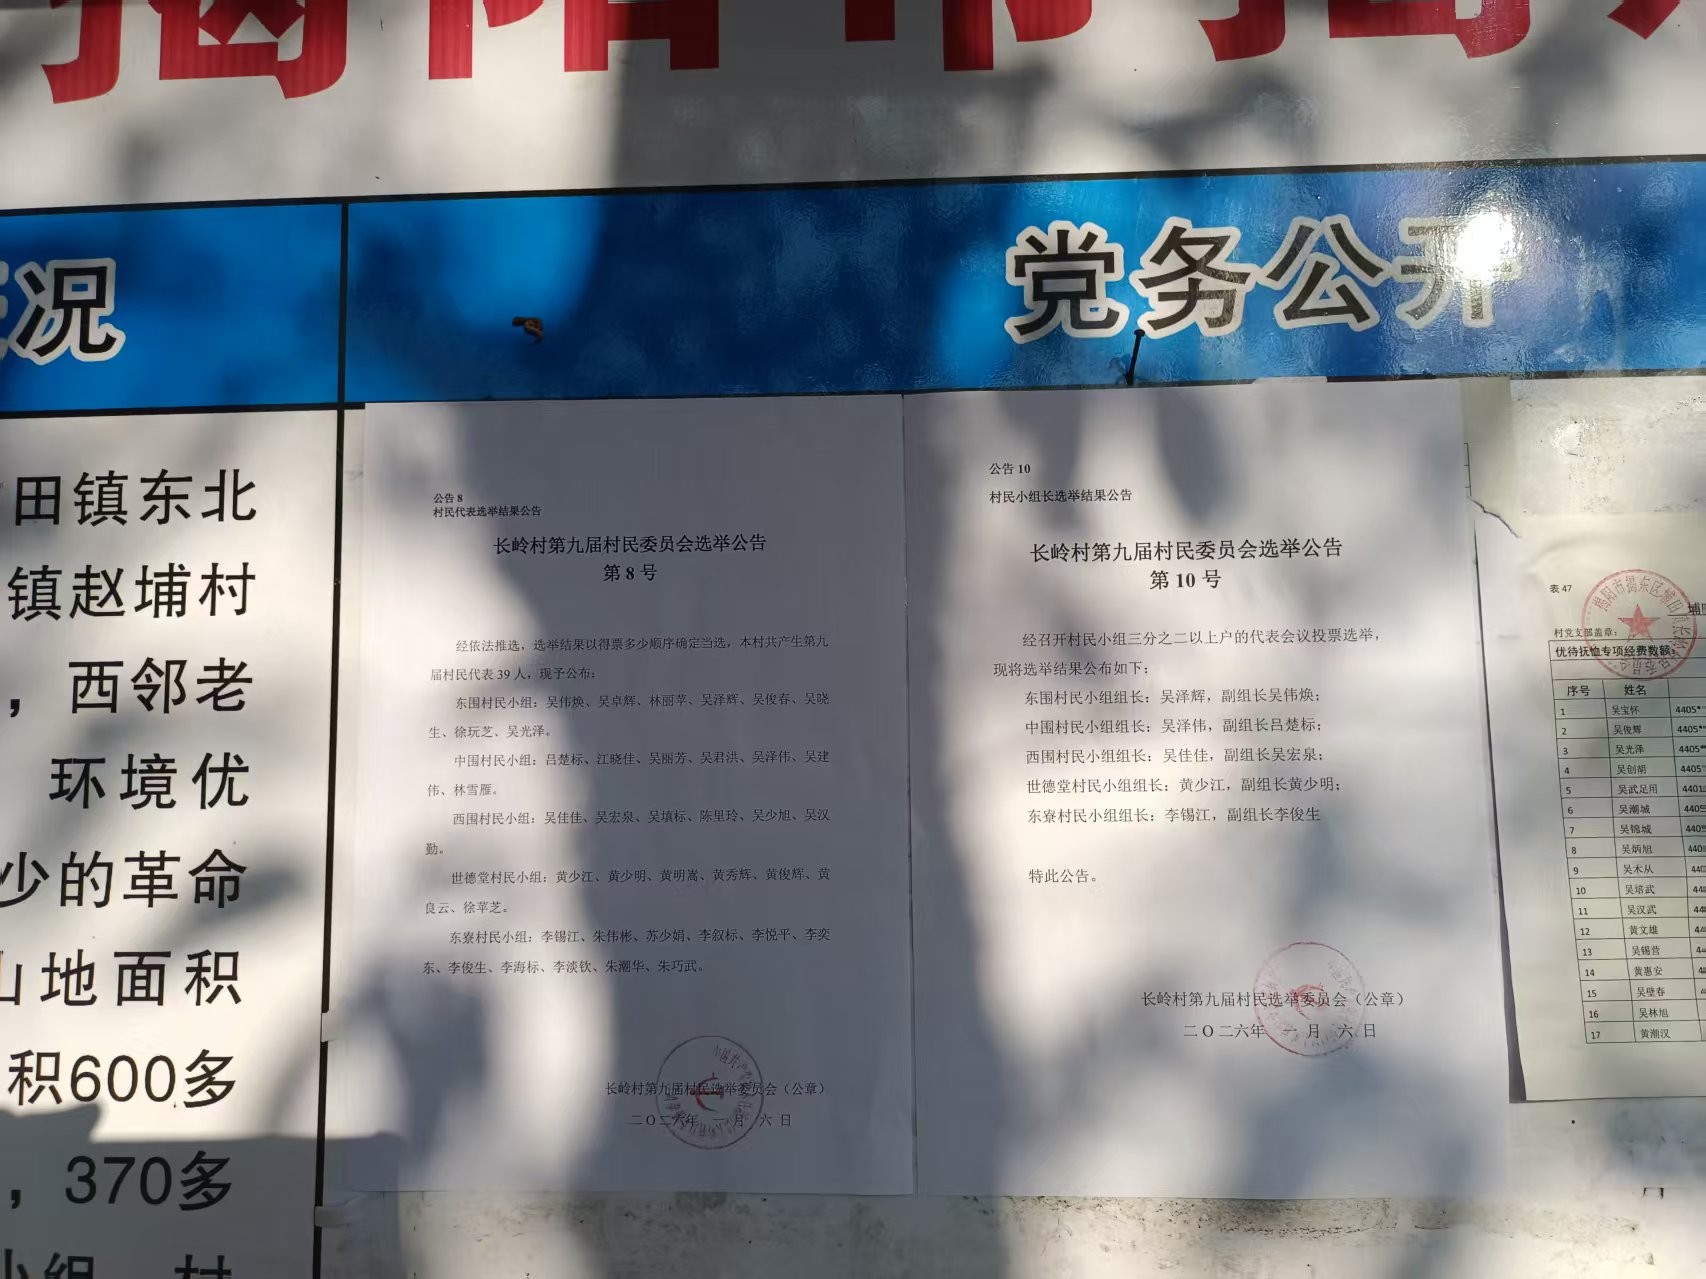 揭阳市揭
况
党务公开
田镇东北
镇赵埔村
，西邻老
环境优
少的革命
山地面积
积600多
，370多
小组，村
公告 8
村民代表选举结果公告
长岭村第九届村民委员会选举公告
第 8 号
经依法推选，选举结果以得票多少顺序确定当选，本村共产生第九
届村民代表 39 人，现予公布：
东围村民小组：吴伟焕、吴卓辉、林丽苹、吴泽辉、吴俊春、吴晓
生、徐玩芝、吴光泽。
中围村民小组：吕楚标、江晓佳、吴丽芳、吴君洪、吴泽伟、吴建
伟、林雪雁。
西围村民小组：吴佳佳、吴宏泉、吴填标、陈里玲、吴少旭、吴汉
勤。
世德堂村民小组：黄少江、黄少明、黄明嵩、黄秀辉、黄俊辉、黄
良云、徐苹芝。
东寮村民小组：李锡江、朱伟彬、苏少娟、李叙标、李悦平、李奕
东、李俊生、李海标、李淡钦、朱潮华、朱巧武。
长岭村第九届村民选举委员会（公章）
二〇二六年 一 月 六 日
公告 10
村民小组长选举结果公告
长岭村第九届村民委员会选举公告
第 10 号
经召开村民小组三分之二以上户的代表会议投票选举，
现将选举结果公布如下：
东围村民小组组长：吴泽辉，副组长吴伟焕；
中围村民小组组长：吴泽伟，副组长吕楚标；
西围村民小组组长：吴佳佳，副组长吴宏泉；
世德堂村民小组组长：黄少江，副组长黄少明；
东寮村民小组组长：李锡江，副组长李俊生
特此公告。
长岭村第九届村民选举委员会（公章）
二〇二六年 一 月 六 日
表 47
埔田
村党支部盖章：
优待抚恤专项经费数额：
序号 姓名
1 吴宝怀 4405*
2 吴俊辉 4405*
3 吴光泽 4405*
4 吴创胡 4405*
5 吴武足用 4401
6 吴潮城 4405
7 吴锦城 4405
8 吴炳旭 440
9 吴木从 440
10 吴培武 44
11 吴汉武 44
12 黄文雄 44
13 吴锡营 44
14 黄惠安
15 吴壁春
16 吴林旭
17 黄潮汉